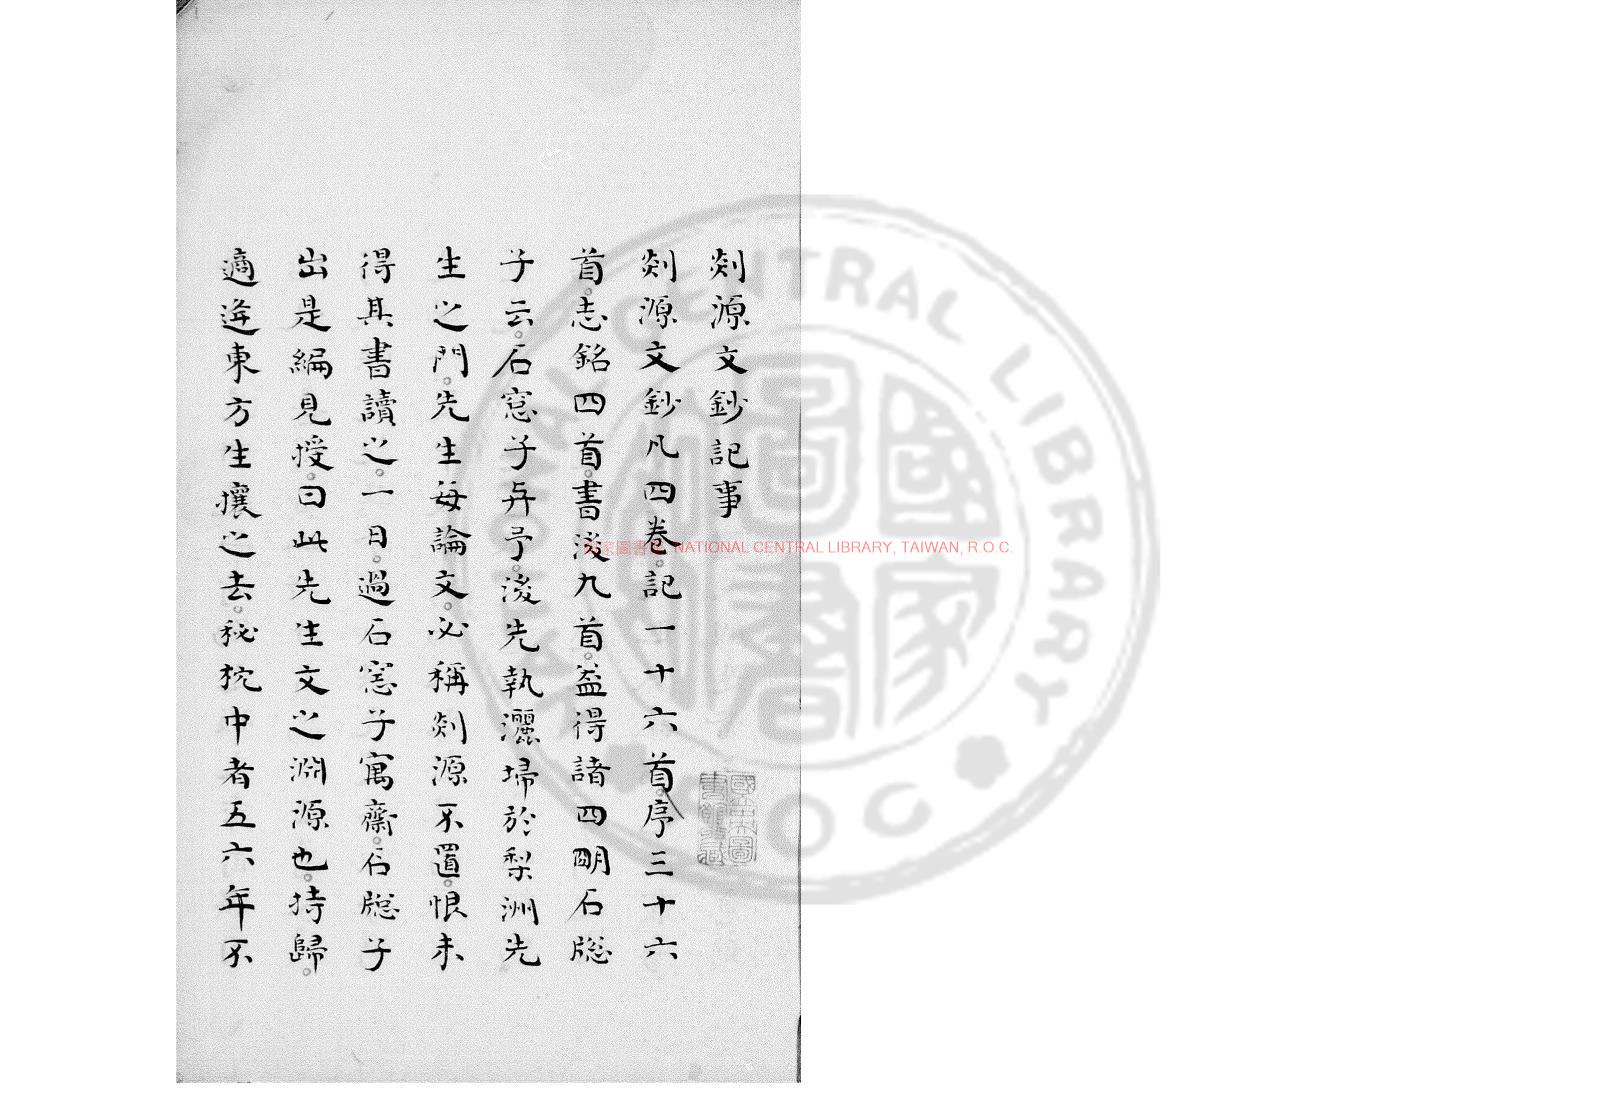 剡源文鈔記事
剡源文鈔凡四卷。記一十六首。序三十六
首。志銘四首。書後九首。益得諸四明石牎
子云。石窓子與予。後先執灑埽於梨洲先
生之門。先生每論文。必稱剡源不置。恨未
得其書讀之。一日。過石窓子寓齋。石牎子
出是編見授。曰此先生文之淵源也。持歸。
適逢東方生攘之去。秘枕中者五六年不
國家圖書館 NATIONAL CENTRAL LIBRARY, TAIWAN, R.O.C.
NATIONAL CENTRAL LIBRARY
ROC
國家圖書
國立中央圖書館藏